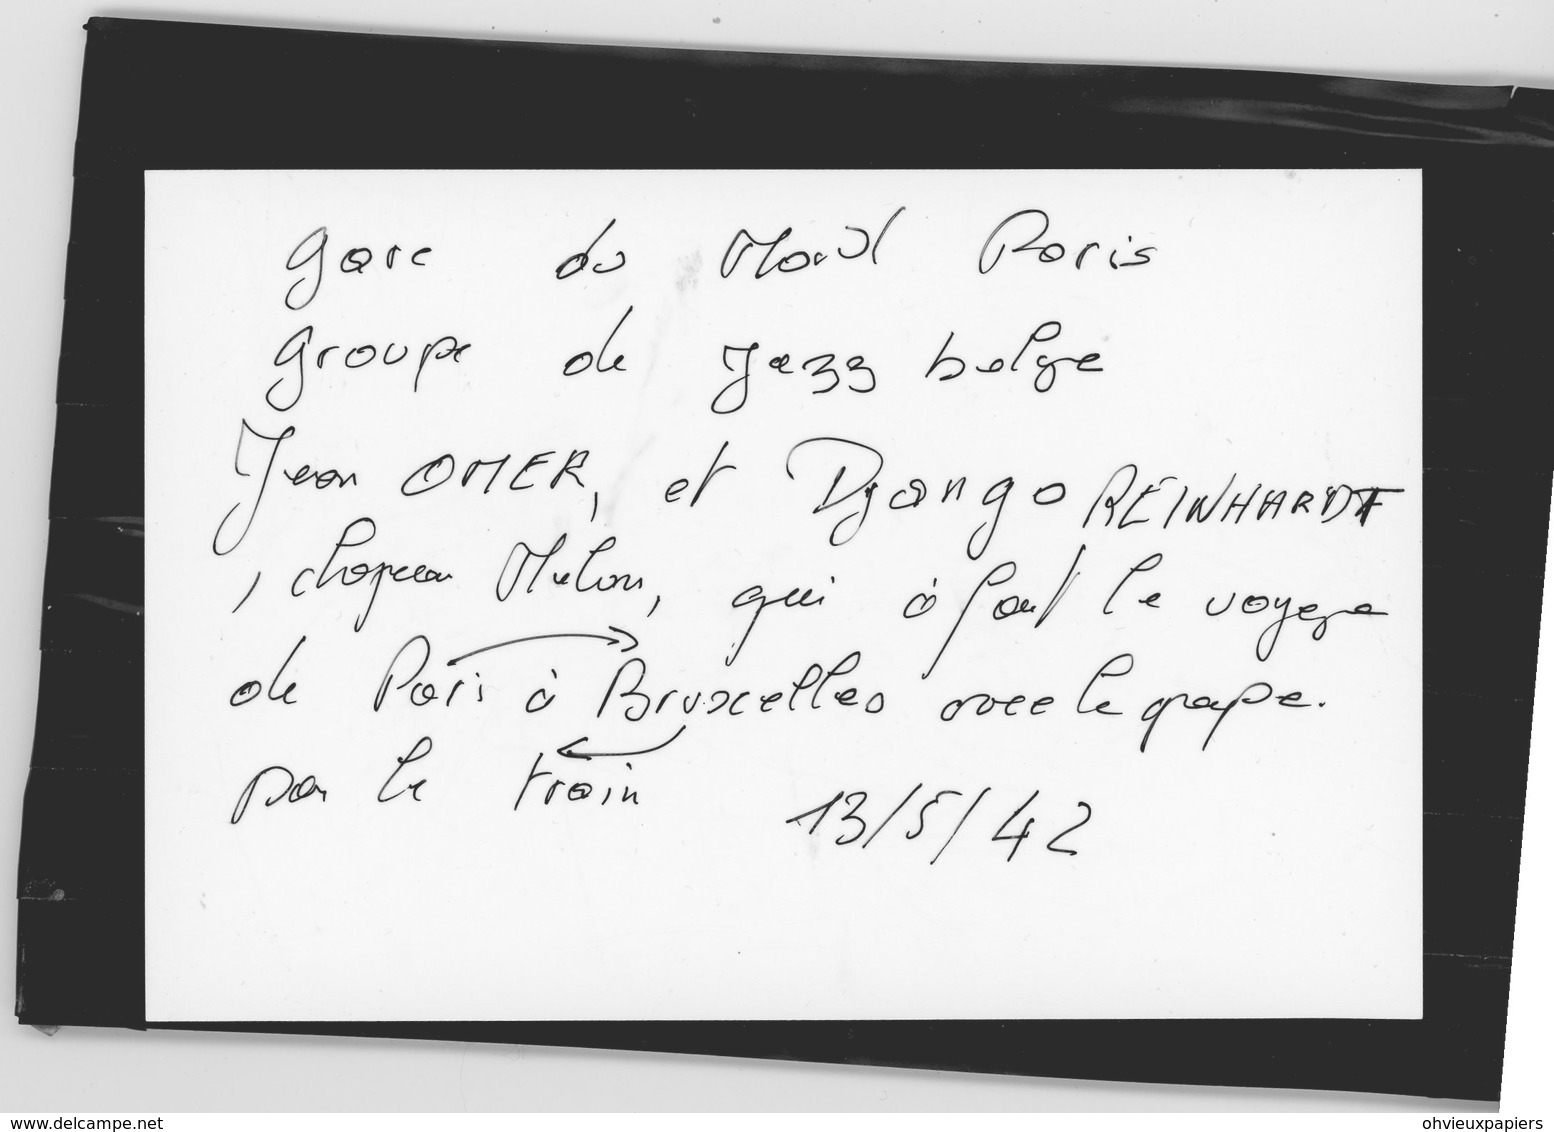 Gare du Nord Paris
Groupe de Jazz belge
Jean OMER, et Django REINHARDT
, chapeau Melon, qui à fait le voyage
de Paris à Bruxelles avec le groupe.
par le train 13/5/42
www.delcampe.net
ohvieuxpapiers